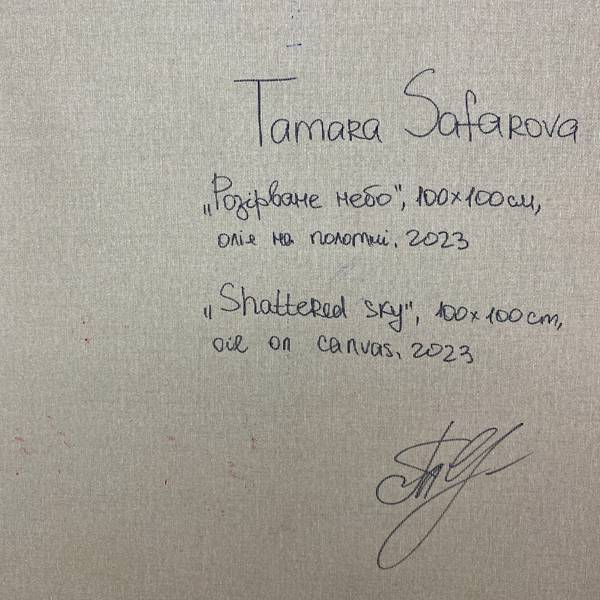 Tamara Safarova
„Розірване небо", 100x100см,
олія на полотні. 2023
„Shattered sky", 100x100cm,
oil on canvas. 2023